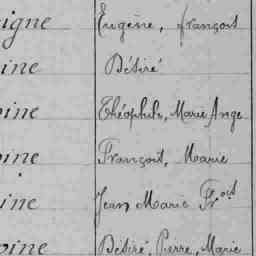 igne Eugène, François
ine Désiré
oine Théophile, Marie Ange
oine François, Marie
ine Jean Marie Frçois
oine Désiré, Pierre, Marie